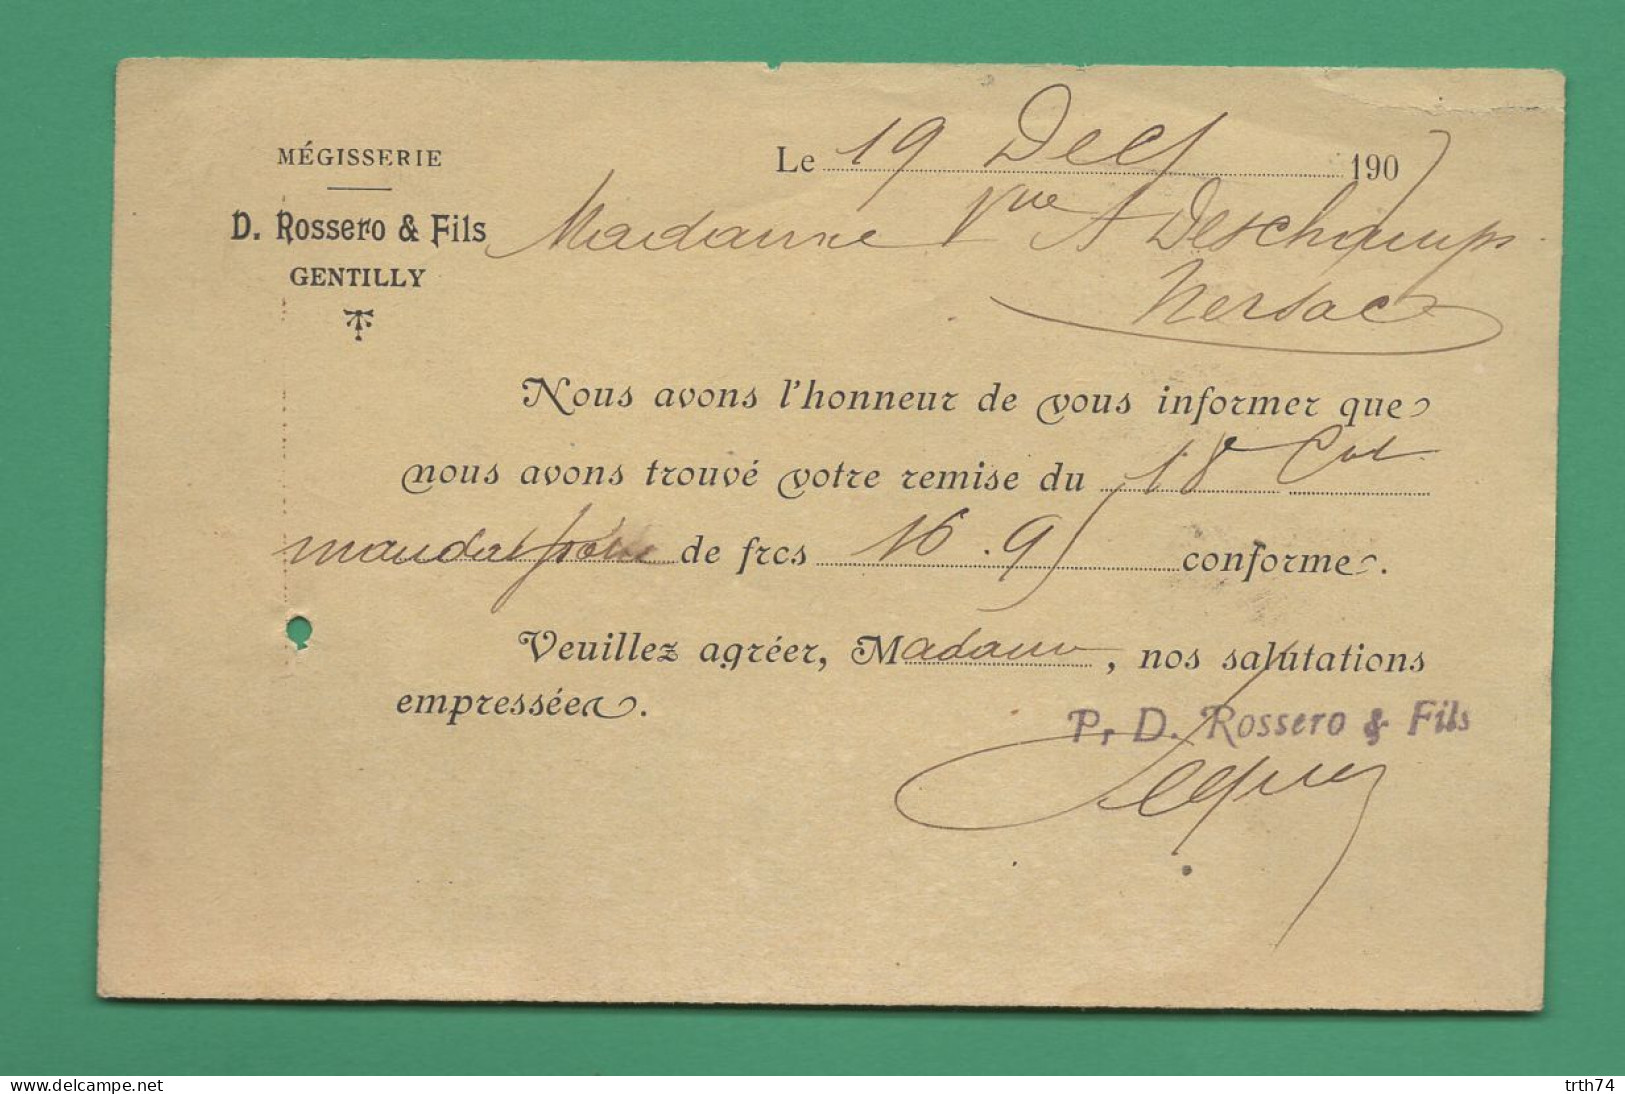 MÉGISSERIE
D. Rossero & Fils
GENTILLY
Le 19 Dec 1907
Madame Vve A Deschamps
Nersac
Nous avons l'honneur de vous informer que
nous avons trouvé votre remise du 18 Ct
mandat poste de frcs 16.95 conforme.
Veuillez agréer, Madame, nos salutations
empressées.
Pr D. Rossero & Fils
www.delcampe.net
trth74